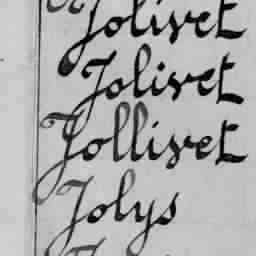 Jolivet
Jolivet
Jollivet
Jolys